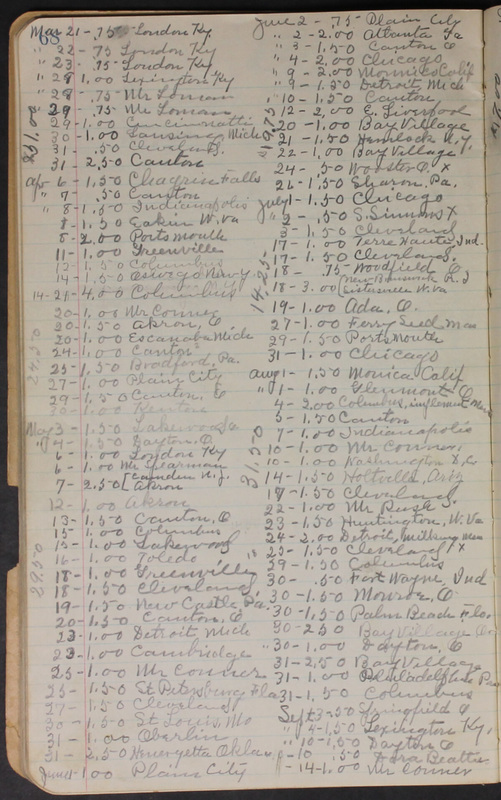 68
Mar 21 - .75 London Ky
" 22 - .75 London Ky
" 23 - .75 London Ky
" 28 1.00 Lexington Ky
" 28 .75 Mr Loman
" 29 .75 Mr Loman
29 - 1.00 Cincinnatti
30 - 1.00 Lansing, Mich
31 - .50 Cleveland
31 - 2.50 Canton
Apr 6 - 1.50 Chagrin Falls
" 7 - .50 Canton
" 8 - 1.50 Indianapolis
8 - 1.50 Eakin W. Va
8 - 2.00 Portsmouth
11 - 1.00 Greenville
12 - 1.50 Columbus
14 - 1.50 Oswego New Y
14 - 21 - 4.00 Columbus
20 - 1.00 Mr Conner
20 - 1.50 Akron, O
20 - 1.00 Escanaba Mich
24 - 1.00 Canton
25 - 1.50 Bradford, Pa.
27 - 1.00 Plain City
29 - 1.50 Canton, O
30 - 1.00
24.50
May 3 - 1.50 Lakewood
" 4 - 1.50 Dayton, O
6 - 1.00 London Ky
6 - 1.00 Mr Spearman
7 - 2.50 [Camden N.J.
Akron
12 - 1.00 Akron
13 - 1.50 Canton, O
15 - 1.00 Columbus
15 - 1.00 Lakewood
16 - 1.00 Toledo
18 - 1.00 Greenville
18 - 1.50 Cleveland
19 - 1.50 New Castle, Pa.
20 - 1.50 Canton, O
23 - 1.00 Detroit Mich
23 - 1.00 Cambridge
25 - 1.00 Mr Conner
25 - 1.50 St Petersburg Fla
27 - 1.50 Cleveland
30 - 1.50 St Louis, Mo
31 - 1.00 Oberlin
31 - 2.50 Henryetta Oklas
June 1 - 1.00 Plain City
June 2 - .75 Plain City
" 2 - 2.00 Atlanta Ga
" 3 - 1.50 Canton O
" 4 - 2.00 Chicago
" 9 - 2.00 Calif
" 9 - 1.50 Detroit Mich
" 10 - 1.50 Canton
12 - 2.00 E. Liverpool
20 - 1.00 Bay Village
21 - 1.50 Hemlock N.Y.
22 - 1.00 Bay Village
24 - .50 Wooster O. x
26 - 1.50 Sharon, Pa.
July 1 - 1.50 Chicago
" 2 - .50 S. Simms x
3 - 1.50 Cleveland
17 - 1.00 Terre Haute, Ind.
17 - 1.50 Cleveland
18 - .75 Woodfield O
18 - 3.00 (New Brunswick N.J
Sistersville W. Va
14.25
19 - 1.00 Ada, O.
27 - 1.00 Ferry Seed Man
29 - 1.50 Portsmouth
31 - 1.00 Chicago
Aug 1 - 1.50 Monica Calif
" 1 - 1.00 Glenmont O
4 - 2.00 Columbus,
5 - 1.50 Canton
7 - 1.00 Indianapolis
10 - 1.00 Mr Conner,
10 - 1.00 Washington D.C
14 - 1.50 Holtville, Ariz
17 - 1.50 Cleveland
22 - 1.00 Mr Rush
23 - 1.50 Huntington, W. Va
24 - 2.00 Detroit,
25 - 1.50 Cleveland x
29 - 1.50 Columbus
30 - .50 Fort Wayne, Ind
30 - 1.50 Monroe, O
30 - 1.50 Palm Beach Fla.
30 - 2.50 Bay Village O.
30 - 1.00 Dayton, O
31 - 2.50 Bay Village
31 - 1.00 Philadelphia Pa
31 - 1.50 Columbus
Sept 3 - .50 Springfield O
" 4 - 1.50 Lexington Ky.
" 10 - 1.50 Dayton O
" 10 .50 Dora Beattie
" 14 - 1.00 Mr Conner